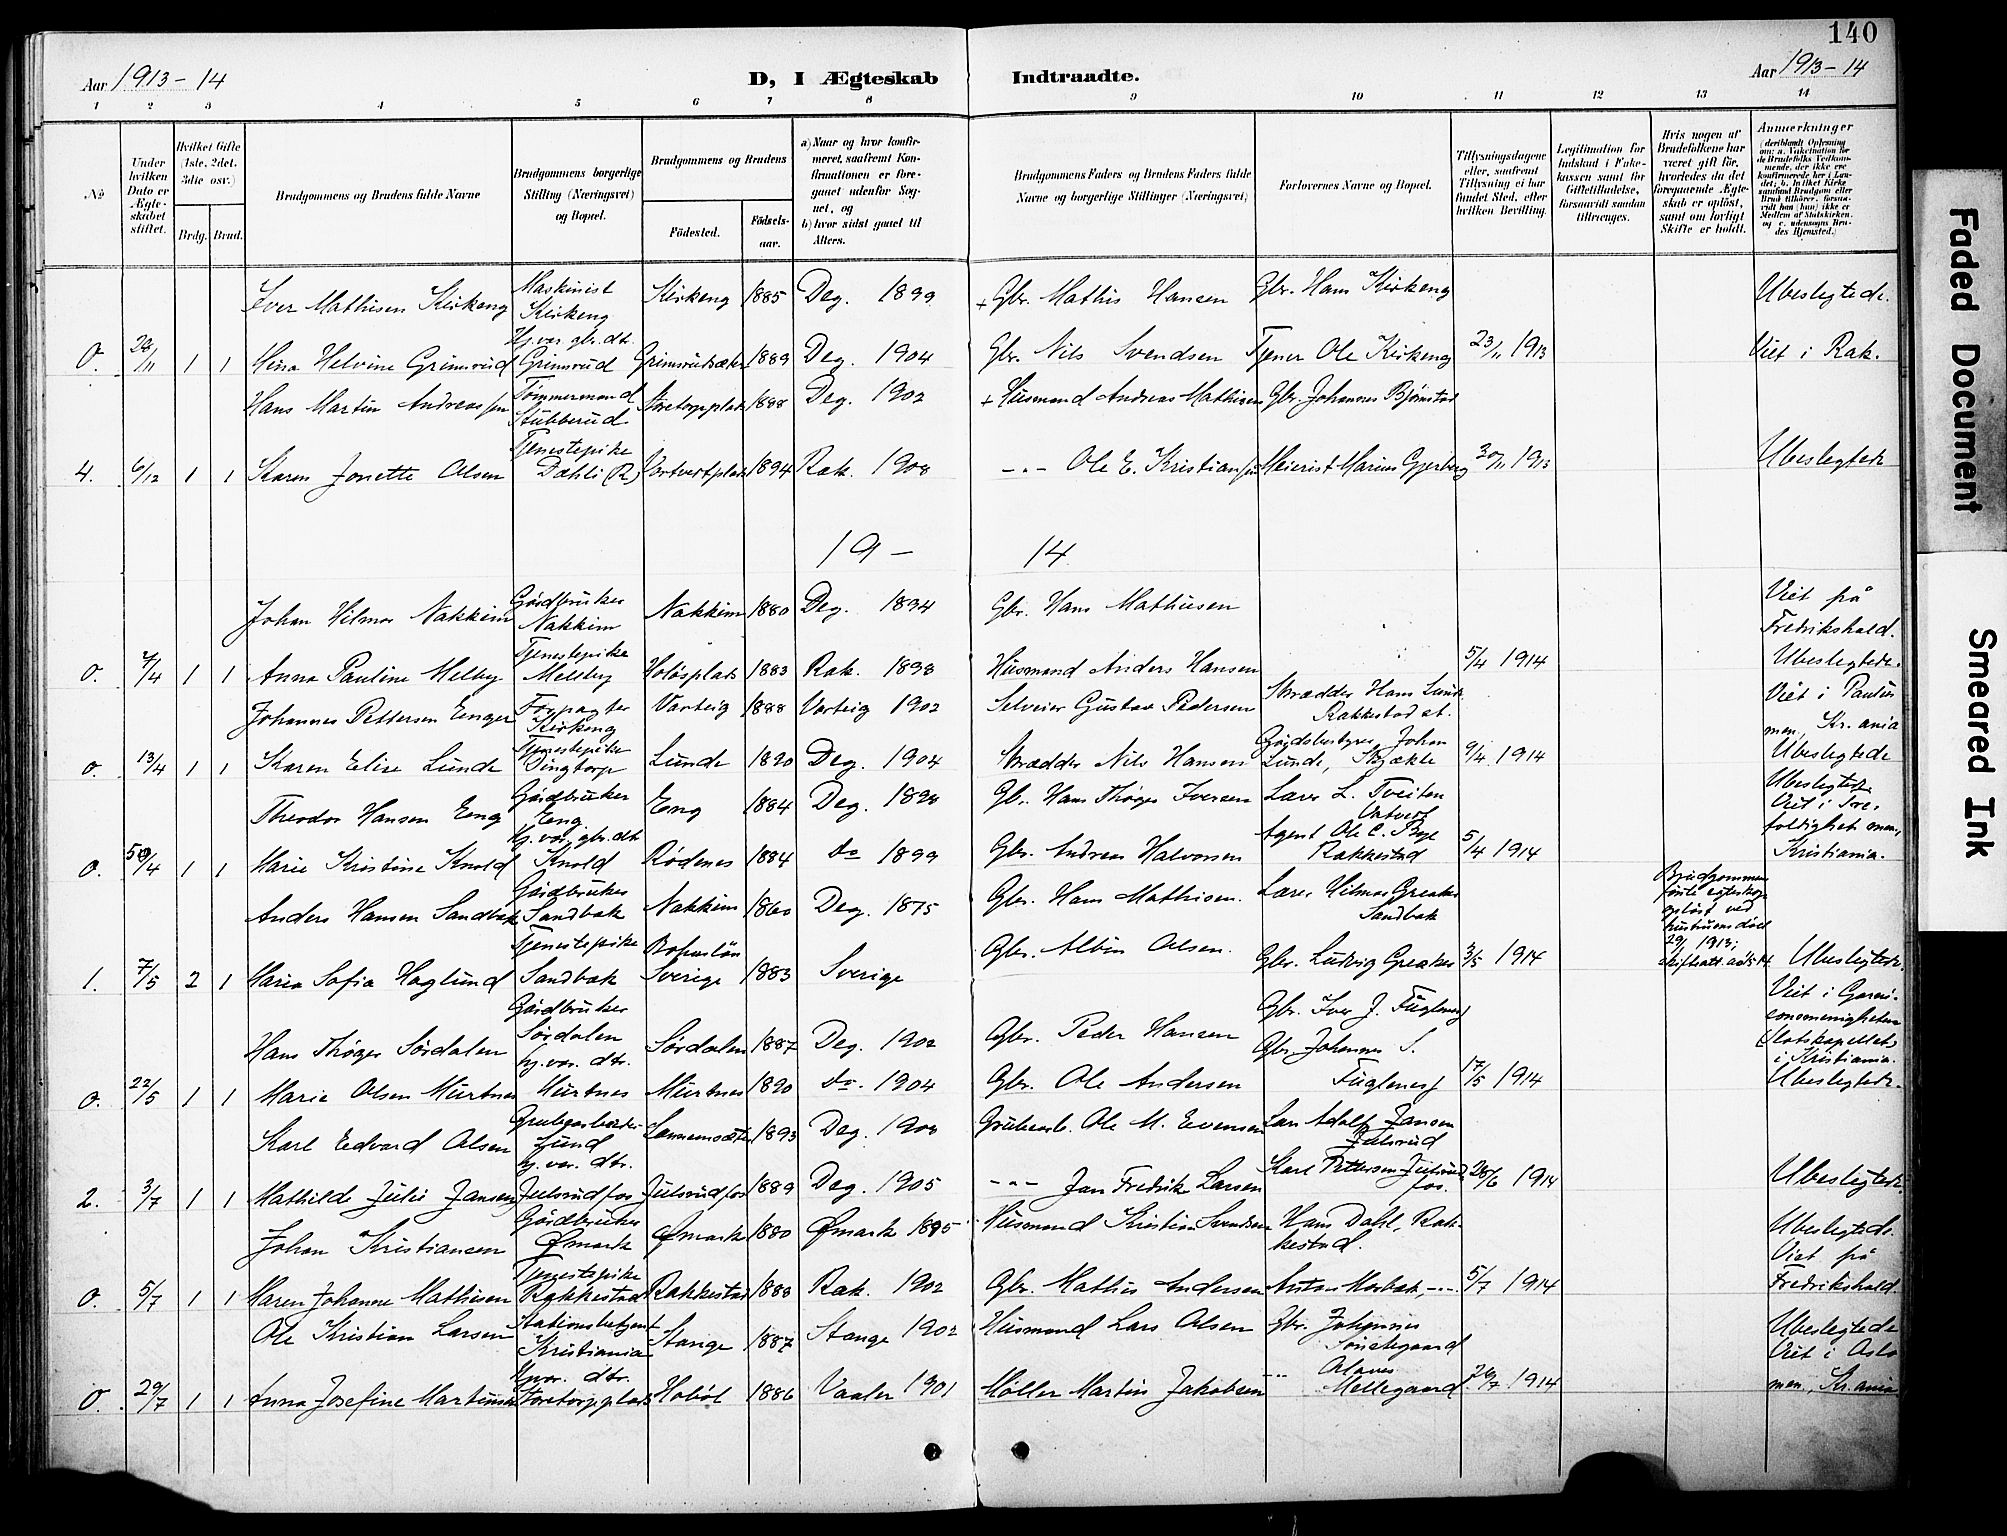 140
Aar 1913-14
D, I Ægteskab Indtraadte.
Aar 1913-14
1 2 3 4 5 6 7 8 9 10 11 12 13 14
No
Under hvilken Dato er Ægteskabet stiftet.
Hvilket Gifte (1ste, 2det, 3die osv.)
Brdg. Brud.
Brudgommens og Brudens fulde Navne
Brudgommens borgerlige Stilling (Næringsvei) og Bopæl.
Brudgommens og Brudens
Fødested. Fødsels-aar.
a) Naar og hvor konfirmeret, saafremt Konfirmationen er foregaaet udenfor Sognet, og
b) hvor sidst gaaet til Alters.
Brudgommens Faders og Brudens Faders fulde Navne og borgerlige Stillinger (Næringsvei)
Forlovernes Navne og Bopæl.
Tillysningsdagene eller, saafremt Tillysning ei har fundet Sted, efter hvilken Bevilling.
Legitimation for Indskud i Enkekassen samt for Giftetilladelse, forsaavidt saadan tiltrænges.
Hvis nogen af Brudefolkene har været gift før, hvorledes da det foregaaende Ægteskab er opløst, samt om lovligt Skifte er holdt.
Anmerkninger
Iver Mathisen Kirkeng Maskinist Kirkeng Kirkeng 1885 Deg. 1899 + Gbr. Mathis Hansen Gbr. Hans Kirkeng Ubeslegtede.
0. 28/11 1 1 Mina Helvine Grimsrud Hj.vær. gbr. dtr. Grimsrud 1889 Deg. 1904 Gbr. Nils Svendsen Tjener Ole Kirkeng 23/11 1913 Viet i Rak.
Hans Martin Andreassen Tømmermand Stubberud Storetorpplads 1888 Deg. 1902 + Husmand Andreas Mathisen Gbr. Johannes Bjørnstad
4. 6/12 1 1 Karen Jonette Olsen Tjenestepike Dæhli (R) 1894 Rak. 1908 -"- Ole E. Kristiansen Meierist Marius Gjerberg 30/11 1913 Ubeslegtede
19-14
Johan Hilmar Nakkim Gårdbruker Nakkim Nakkim 1880 Deg. 1894 Gbr. Hans Mathisen Viet på Fredrikshald.
0. 7/4 1 1 Anna Pauline Melby Tjenestepike Melby 1883 Rak. 1898 Husmand Anders Hansen 5/4 1914 Ubeslegtede.
Johannes Pettersen Enger Forpagter Kirkeng Varteig 1888 Varteig 1902 Selveier Gustav Pedersen Skrædder Hans Lunde Rakkestad st. Viet i Paulus men., Kr.ania
0. 13/4 1 1 Karen Elise Lunde Tjenestepike Dingtorp Lunde 1890 Deg. 1904 Skrædder Nils Hansen Gårdsbestyrer Johan Lunde, Skjækle 9/4 1914 Ubeslegtede
Theodor Hansen Eng Gårdbruker Eng Eng 1884 Deg. 1898 Gbr. Hans Thøger Iversen Lærer L. Tveiten Ubeslegtede. Viet i Trefoldighet men., Kristiania.
0. 1 1 Marie Kristine Knold Hj. vær. gbr. dtr. Knold Rødenes 1884 do 1899 Gbr. Andreas Halvorsen Agent Ole C. Rakkestad 5/4 1914
Anders Hansen Sandbæk Gårdbruker Sandbæk Nakkim 1860 Deg. 1875 Gbr. Hans Mathisen. Lærer Hilmar Greaker Sandbæk Brudgommens første egteskap opløst ved hustruens død 29/ 1913;
1. 7/5 2 1 Maria Sofia Haglund Tjenestepike Sandbæk Bohuslän Sverige 1883 Sverige Gbr. Albin Olsen. Gbr. Ludvig Greaker 3/5 1914 Ubeslegtede.
Hans Thøger Sørdalen Gårdbruker Sørdalen Sørdalen 1887 Deg. 1902 Gbr. Peder Hansen Gbr. Iver J. Fuglenes Viet i Garnisonsmenigheten (Slotskapellet) i Kristiania.
0. 22/5 1 1 Marie Olsen Murtnes hj. vær. dtr. Murtnes Murtnes 1890 do. 1904 Gbr. Ole Andersen Gbr Johannes S. Fuglenes 17/5 1914 Ubeslegtede.
Karl Edvard Olsen Grubearbeider hund 1893 Deg. 1908 Grubearb. Ole M. Evensen Lars Adolf Jansen Julsrud
2. 3/7 1 1 Mathilde Julie Jansen hj. vær. dtr. Julsrudfos Julsrudfos 1889 Deg. 1905 -"- Jan Fredrik Larsen Karl Pettersen Julsrudfos. 28/6 1914 Ubeslegtede.
Johan Kristiansen Gårdbruker Ømark Ømark 1880 Ømark 1895 Husmand Kristian Svendsen Hans Dahl, Rakkestad. Ubeslegtede. Viet på Fredrikshald.
0. 5/7 1 1 Maren Johanne Mathisen Tjenestepike Rakkestad Rakkestad 1888 Rak. 1902 Gbr. Mathis Andersen Anton Morbæk, -"- 5/7 1914
Ole Kristian Larsen Stationsbetjent Kristiania Stange 1887 Stange 1902 Husmand Lars Olsen Gbr. Johannes Ubeslegtede Viet i Oslo men., Kr.ania
0. 29/7 1 1 Anna Josefine Martinsen Hj.vær. dtr. Storetorpplads Hobøl 1886 Vaaler 1901 Møller Martin Jakobsen -"- Olaves Mellegaard 26/7 1914
Faded Document
Smeared Ink